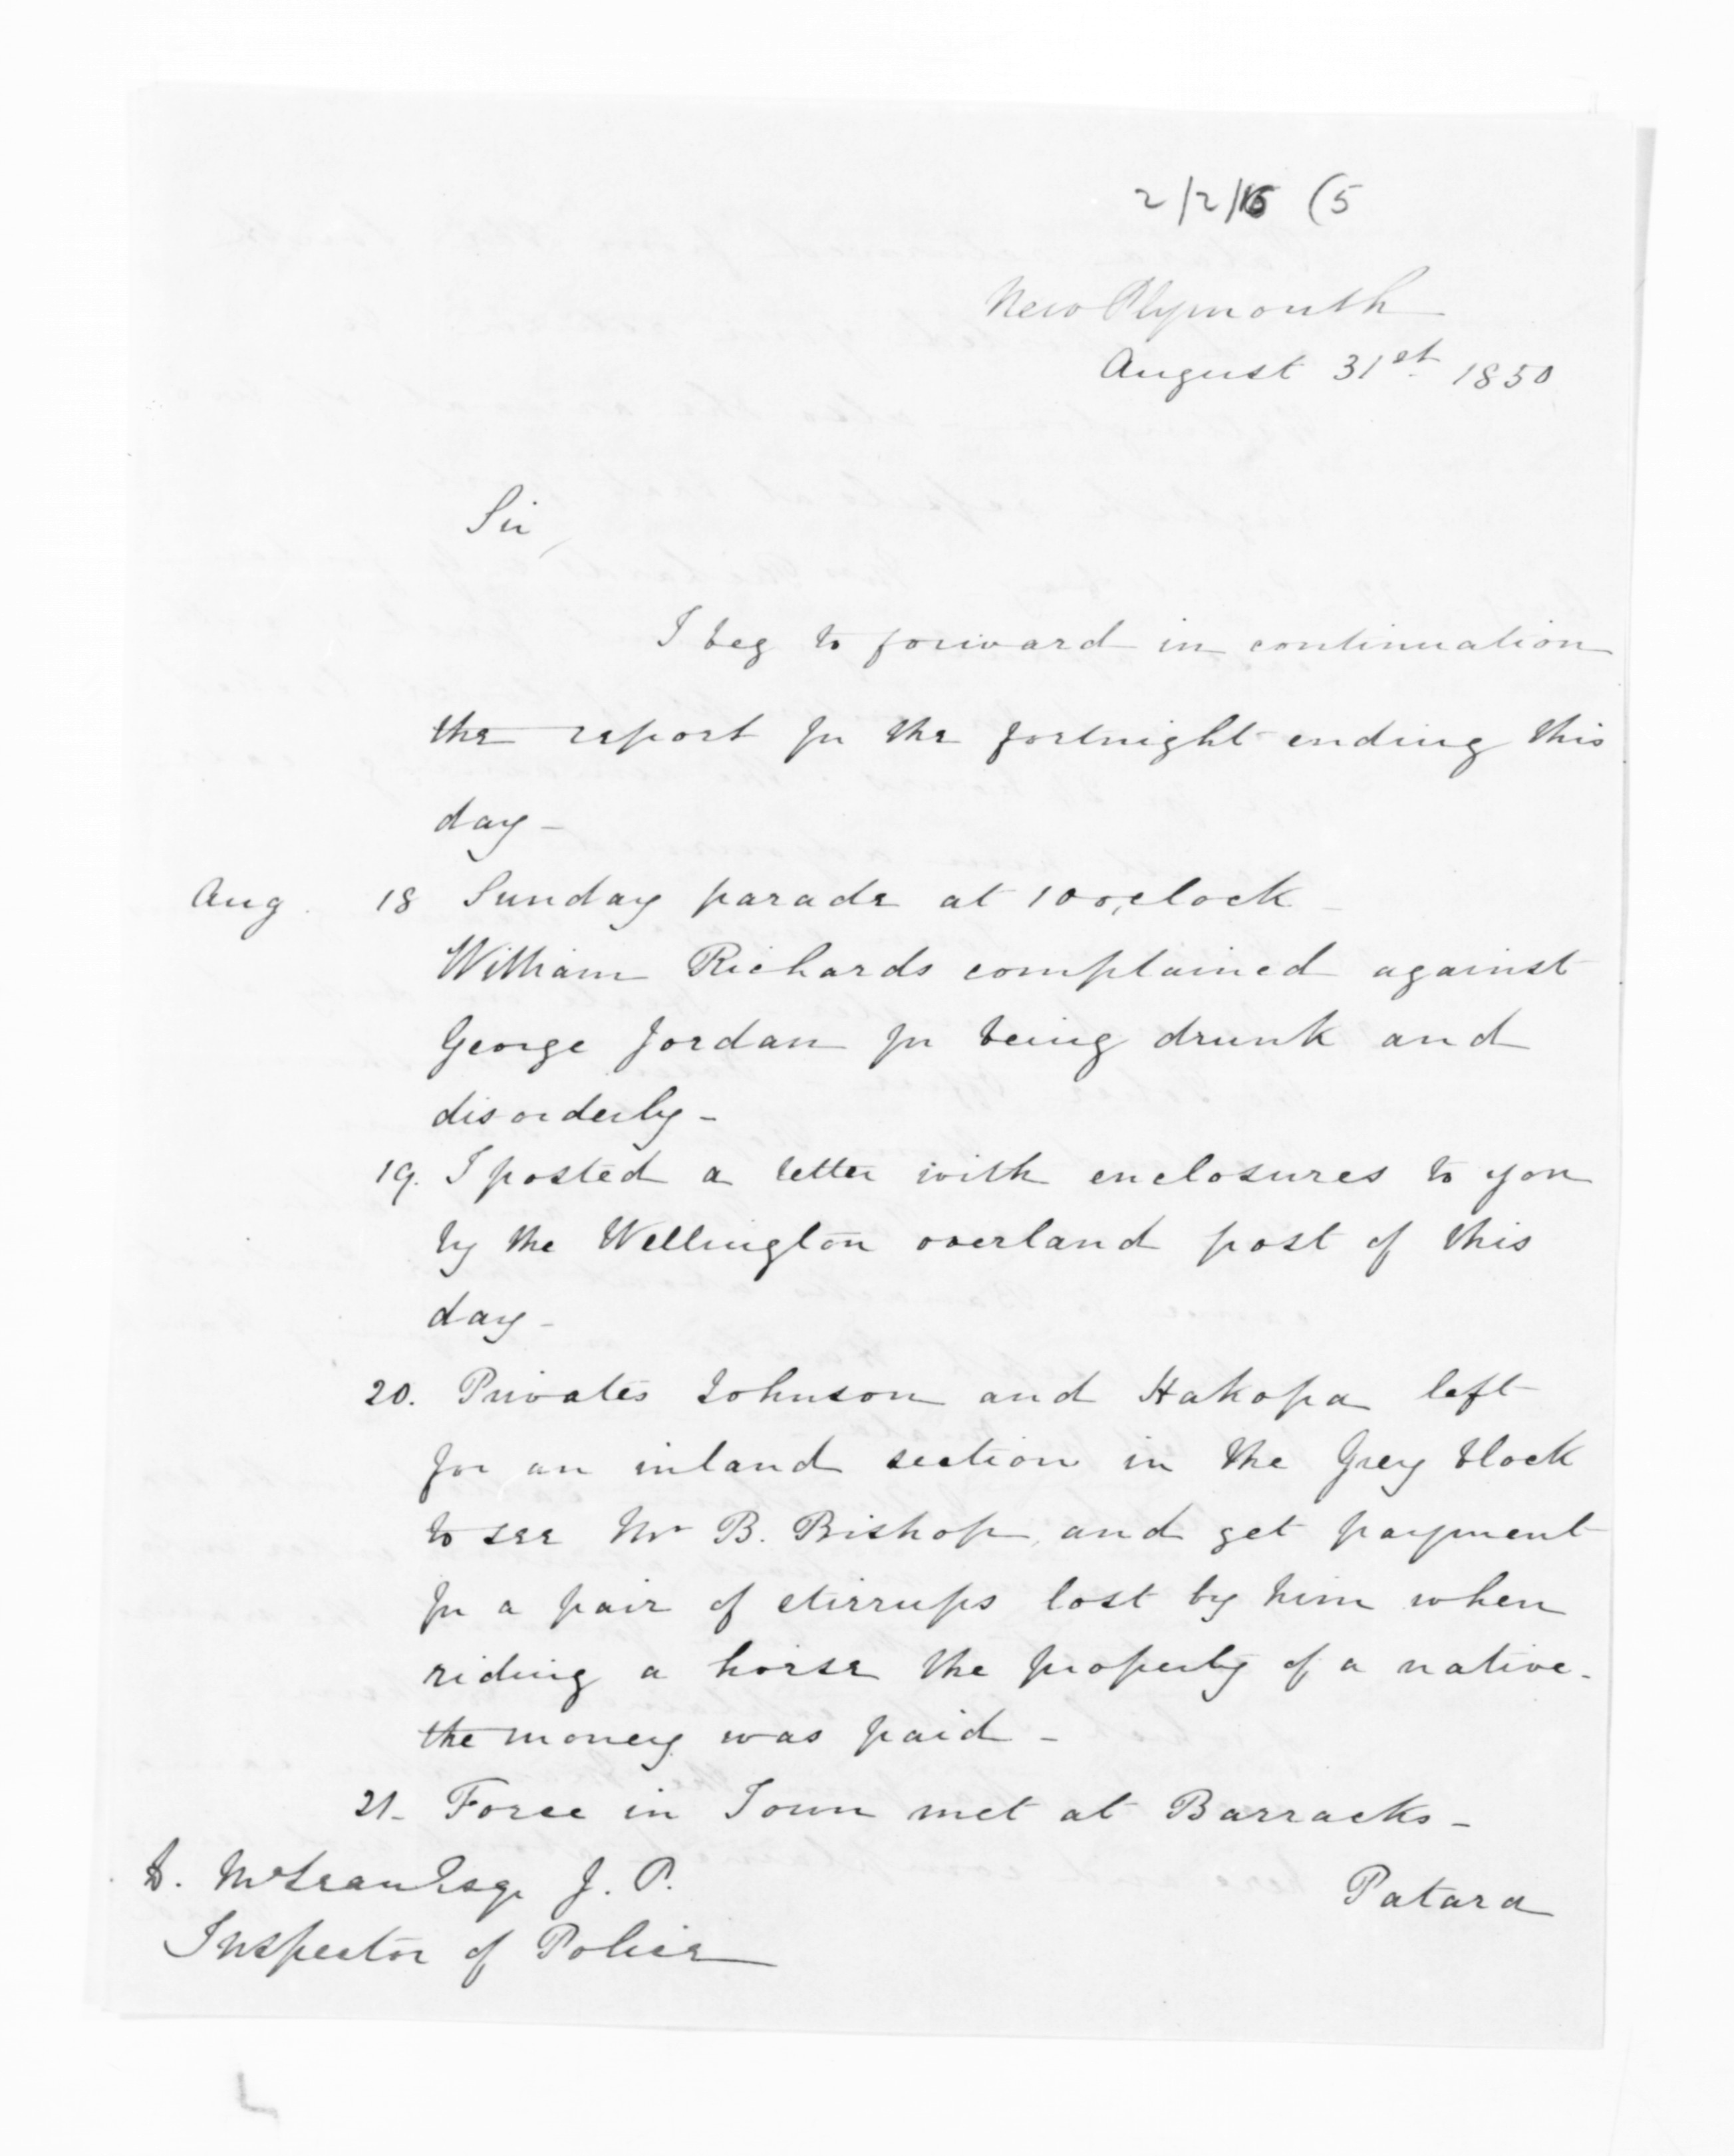 2/2/16 (5
New Plymouth
August 31st 1850
Sir,
I beg to forward in continuation
the report for the fortnight ending this
day -
Aug. 18 Sunday parade at 10 o,clock -
William Richards complained against
George Jordan for being drunk and
disorderly -
19. I posted a letter with enclosures to you
by the Wellington overland post of this
day -
20. Privates Johnson and Hakopa left
for an inland section in the Grey block
to see Mr B. Bishop, and get payment
for a pair of stirrups lost by him when
riding a horse the property of a native -
the money was paid -
21 - Force in Town met at Barracks -
D. McLean Esqe J. P.
Inspector of Police
Patara